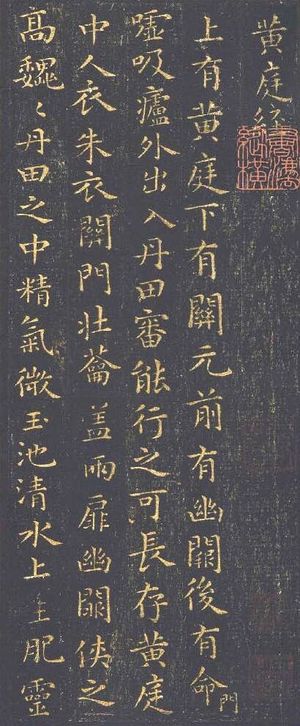 黄庭經
上有黄庭下有關元前有幽闕後有命門
噓吸廬外出入丹田審能行之可長存黄庭
中人衣朱衣關門壯蘥盖兩扉幽闕俠之
高巍〻丹田之中精氣微玉池清水上生肥靈